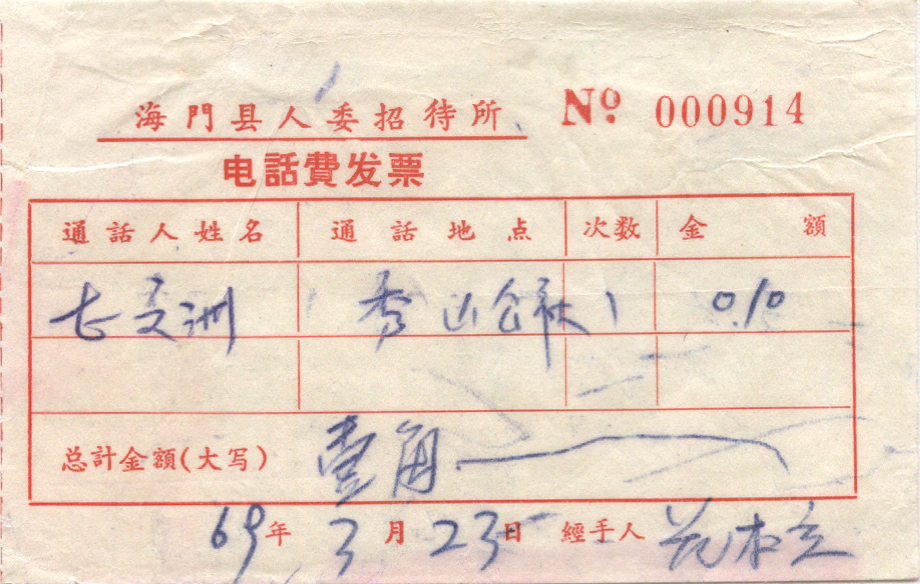 海門县人委招待所 Nº 000914
电話費发票
通話人姓名 通話地点 次数 金額
公社 1 0.10
总計金額(大写) 壹角
69年3月23日 經手人